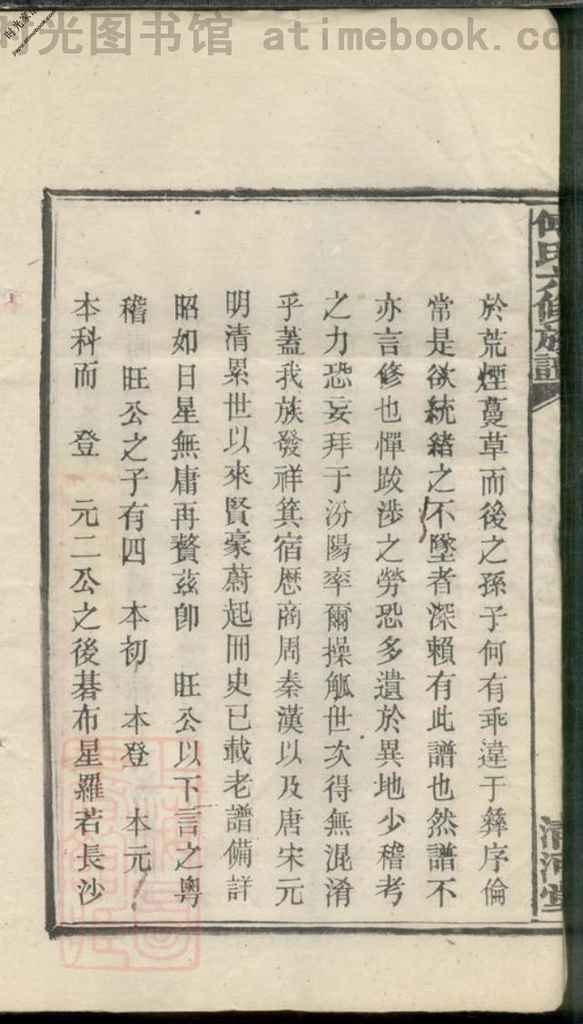 时光图书馆 atimebook.com
氏六修族譜
清河堂
於荒煙蔓草而後之孫子何有乖違于彝序倫
常是欲統緒之不墜者深賴有此譜也然譜不
亦言修也憚跋涉之勞恐多遺於異地少稽考
之力恐妄拜于汾陽率爾操觚世次得無混淆
乎蓋我族發祥箕宿歷商周秦漢以及唐宋元
明清累世以來賢豪蔚起冊史已載老譜備詳
昭如日星無庸再贅茲卽 旺公以下言之粵
稽 旺公之子有四 本初 本登 本元
本科而 登 元二公之後碁布星羅若長沙